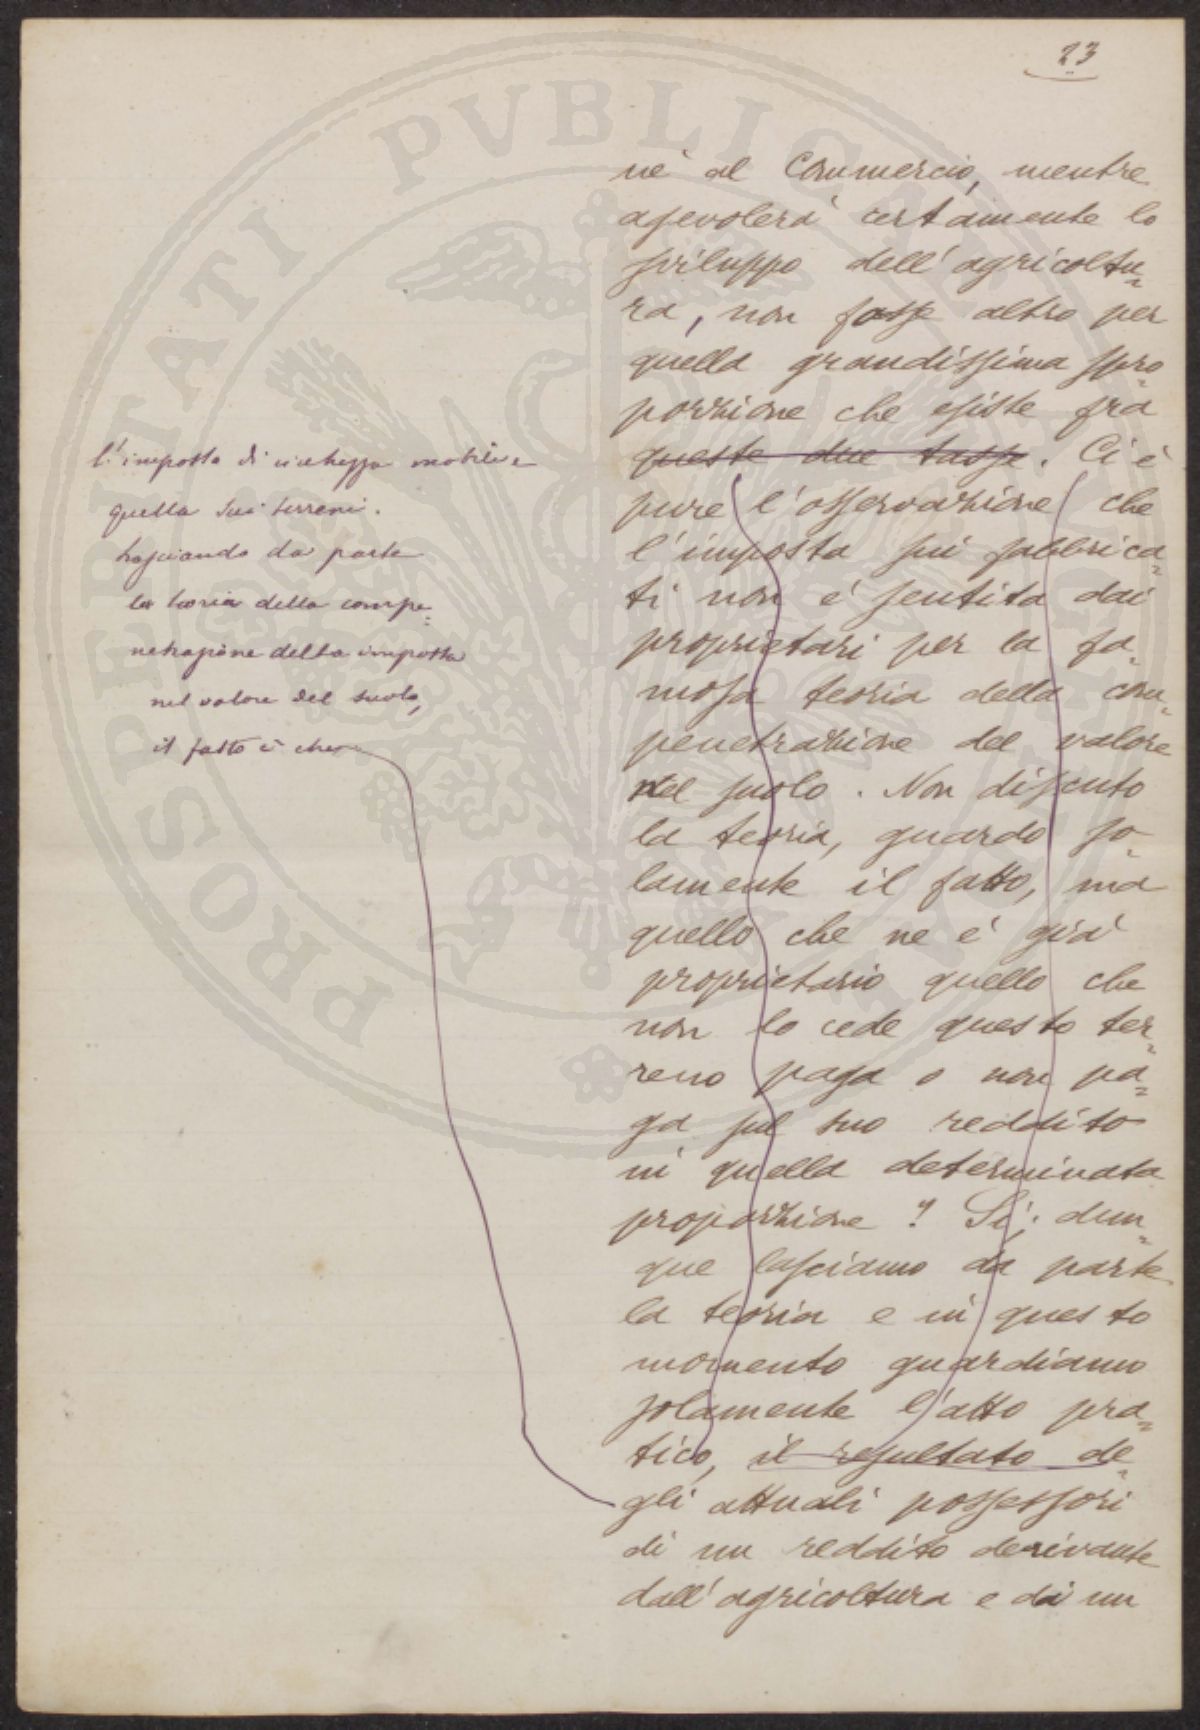 23
nè al Commercio, mentre
agevolerà certamente lo
sviluppo dell'agricoltu=
ra, non fosse altro per
quella grandissima spro=
porzione che esiste fra
queste due tasse. Ci è
pure l'osservazione che
l'imposta sui fabbrica=
ti non è sentita dai
proprietari per la fa=
mosa teoria della com=
penetrazione del valore
nel suolo. Non discuto
la teoria, guardo so=
lamente il fatto, ma
quello che ne è già
proprietario quello che
non lo cede questo ter=
reno paga o non pa=
ga sul suo reddito
in quella determinata
proporzione? Sì; dun=
que lasciamo da parte
la teoria e in questo
momento guardiamo
solamente l'atto pra=
tico, il resultato de=
gli attuali possessori
di un reddito derivante
dall'agricoltura e da un
l'imposta di ricchezza mobile e
quella sui terreni.
Lasciando da parte
la teoria della compe=
netrazione della imposta
nel valore del suolo,
il fatto è che
PROSPERITATI PVBLICAE